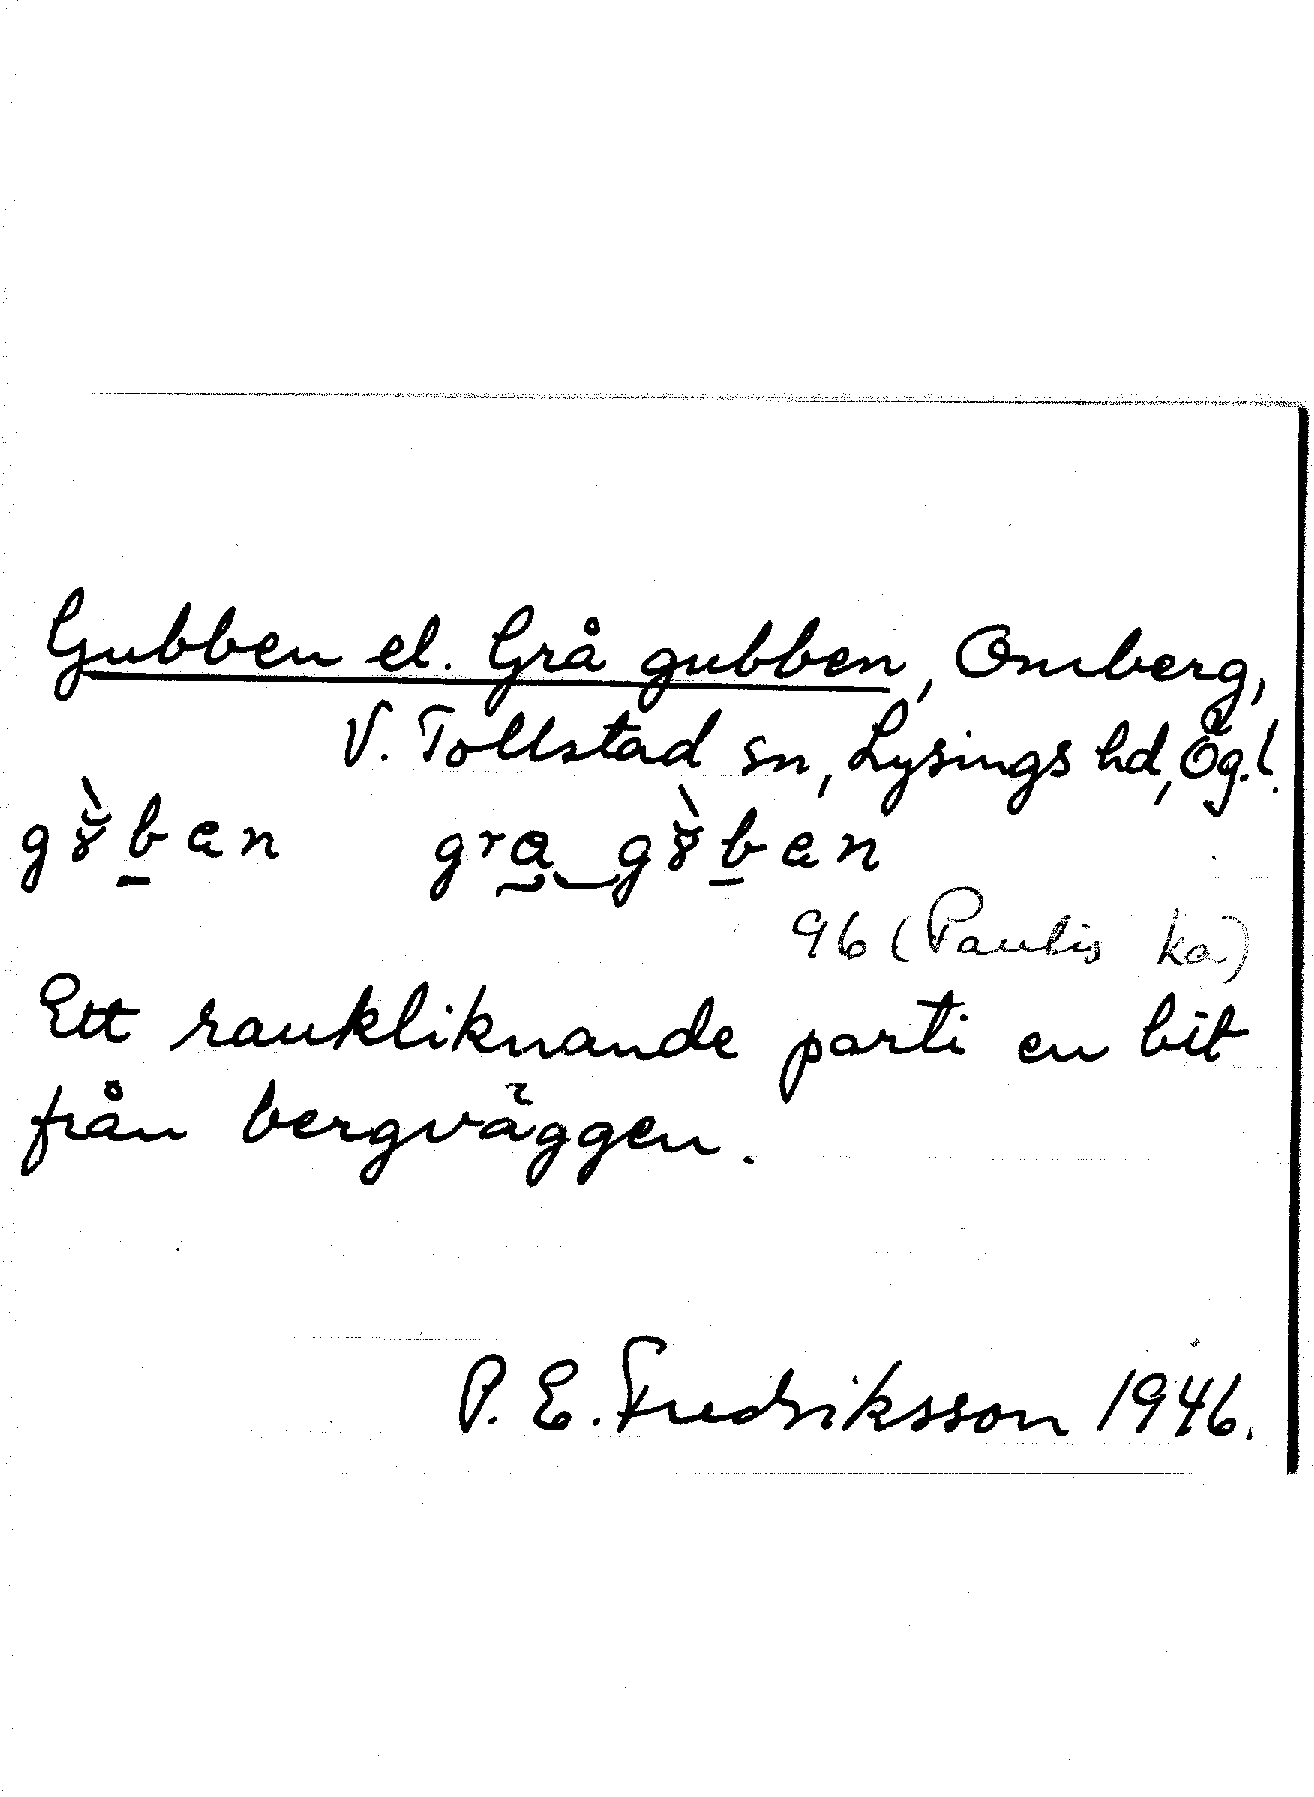 Gubben el. Grå gubben, Omberg,
V. Tollstad sn, Lysings hd, Ögl.
g8̀ban gra g8̀ban
96 (Paulis ka)
Ett raukliknande parti en bit
från bergväggen.
P. E. Fredriksson 1946.